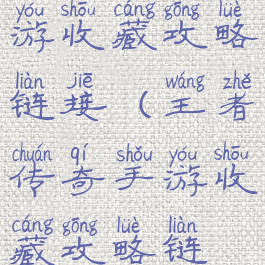 yóu shōu cáng gōng lüè
游收藏攻略
liàn jiē wáng zhě
链接（王者
chuán qí shǒu yóu shōu
传奇手游收
cáng gōng lüè liàn
藏攻略链